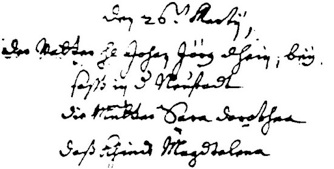 Den 26.t Martÿ,
der Vatter H Johan Jörg Rhein, beÿ
saß in d Neustadt
die Mutter Sara dorothea
daß Khind Magdalena